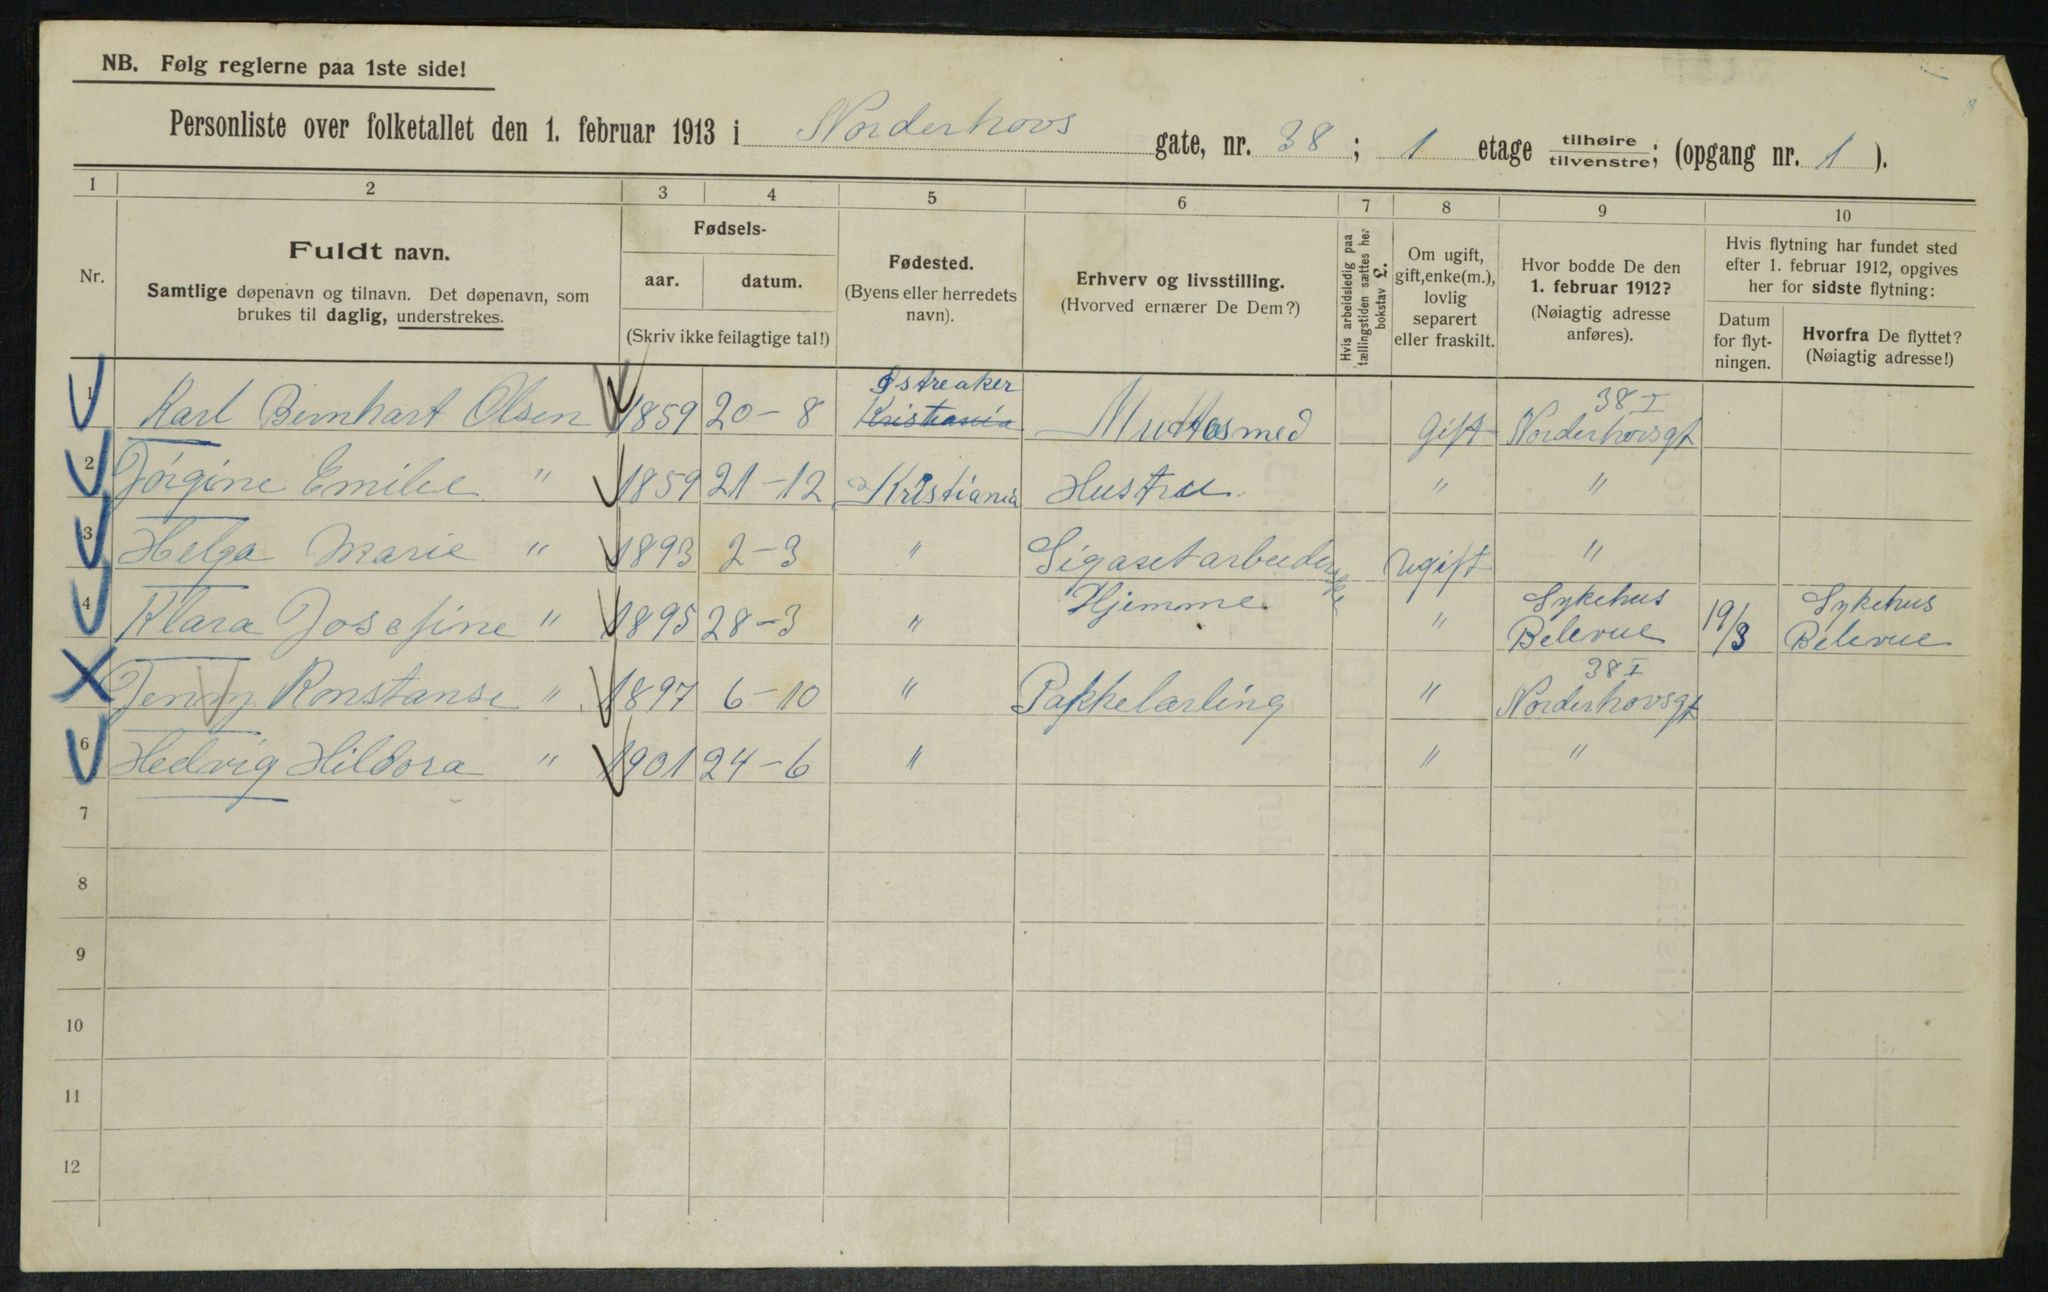 NB. Følg reglerne paa 1ste side!
Personliste over folketallet den 1. februar 1913 i Norderhovs gate, nr. 38 ; 1 etage tilhøire/tilvenstre; (opgang nr. 1 ).
1 2 3 4 5 6 7 8 9 10
Nr.
Fuldt navn.
Samtlige døpenavn og tilnavn. Det døpenavn, som
brukes til daglig, understrekes.
Fødsels-
aar. datum.
(Skriv ikke feilagtige tal!)
Fødested.
(Byens eller herredets
navn).
Erhverv og livsstilling.
(Hvorved ernærer De Dem?)
Hvis arbeidsledig paa
tællingstiden sættes her
bokstav £.
Om ugift,
gift,enke(m.),
lovlig
separert
eller fraskilt.
Hvor bodde De den
1. februar 1912?
(Nøiagtig adresse
anføres).
Hvis flytning har fundet sted
efter 1. februar 1912, opgives
her for sidste flytning:
Datum
for flyt-
ningen.
Hvorfra De flyttet?
(Nøiagtig adresse!)
1 Karl Bernhart Olsen 1859 20-8 Østreaker Kristiania gift 38 I Norderhovsgt
2 Jörgine Emilie " 1859 21-12 Kristiania Hustru " "
3 Helga Marie " 1893 2-3 " Sigaretarbeiderske Ugift "
4 Klara Josefine " 1895 28-3 " Hjemme " Sykehus Belevue 19/3 Sykehus Belevue
Jenny Konstanse " 1897 6-10 " Pakkelærling " 38 I Norderhovsgt
6 Hedvig Hildora " 1901 24-6 " " "
7
8
9
10
11
12